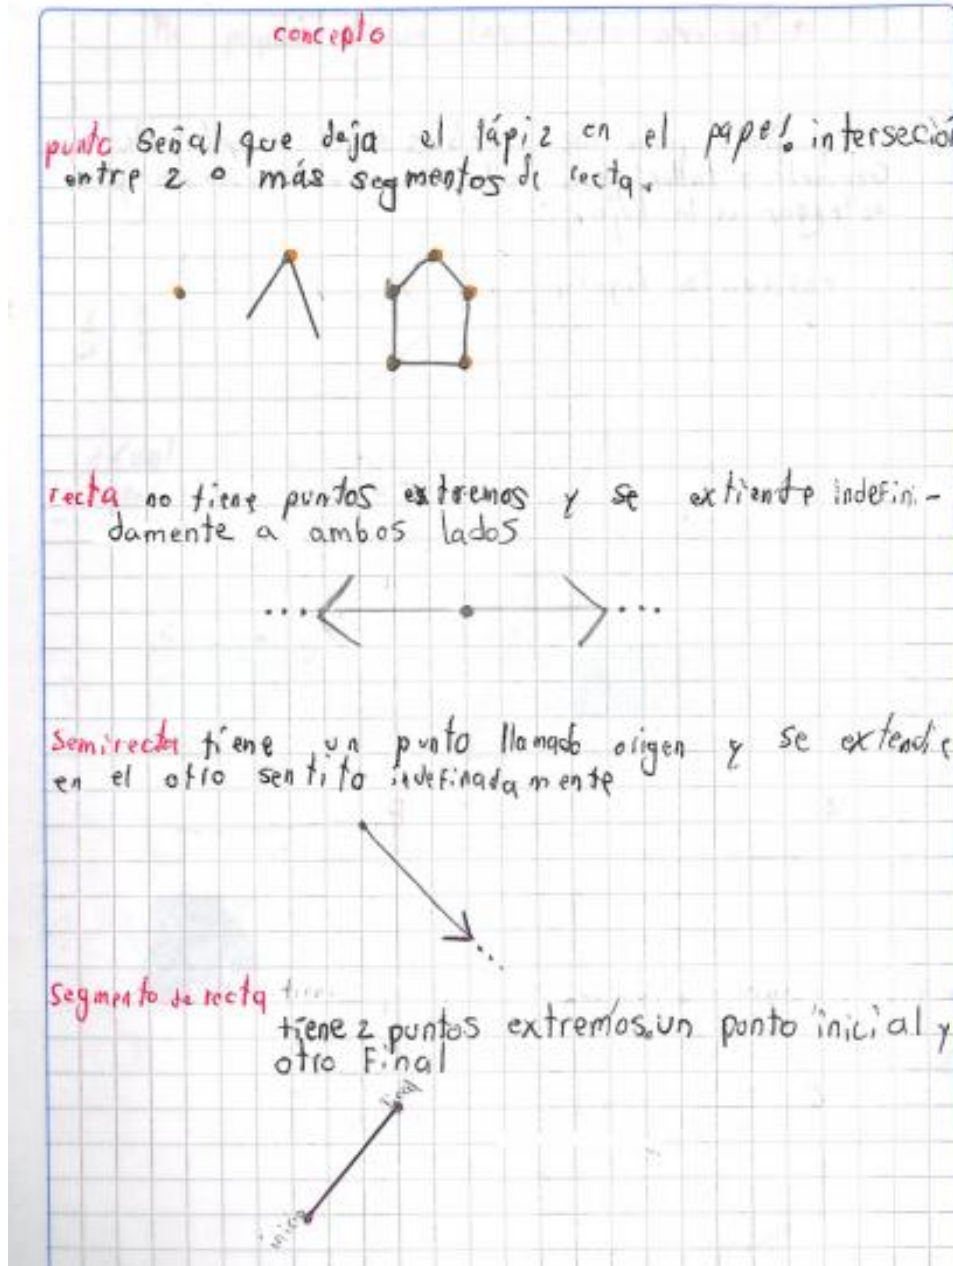 concepto
punto Señal que deja el lápiz en el papel. interseción
entre 2 o más segmentos de recta.
recta no tiene puntos extremos y se extiente indefini-
damente a ambos lados
semirecta tiene un punto llamado origen y se extendie
en el otro sentito indefinadamente
segmento de recta
tiene 2 puntos extremos.un punto inicial y
otro Final
final
inicio